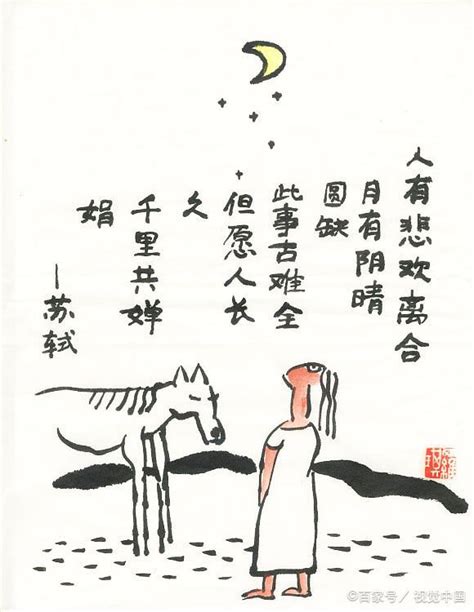 人有悲欢离合
月有阴晴
圆缺
此事古难全
但愿人长
久
千里共婵
娟
—苏轼
©百家号／视觉中国